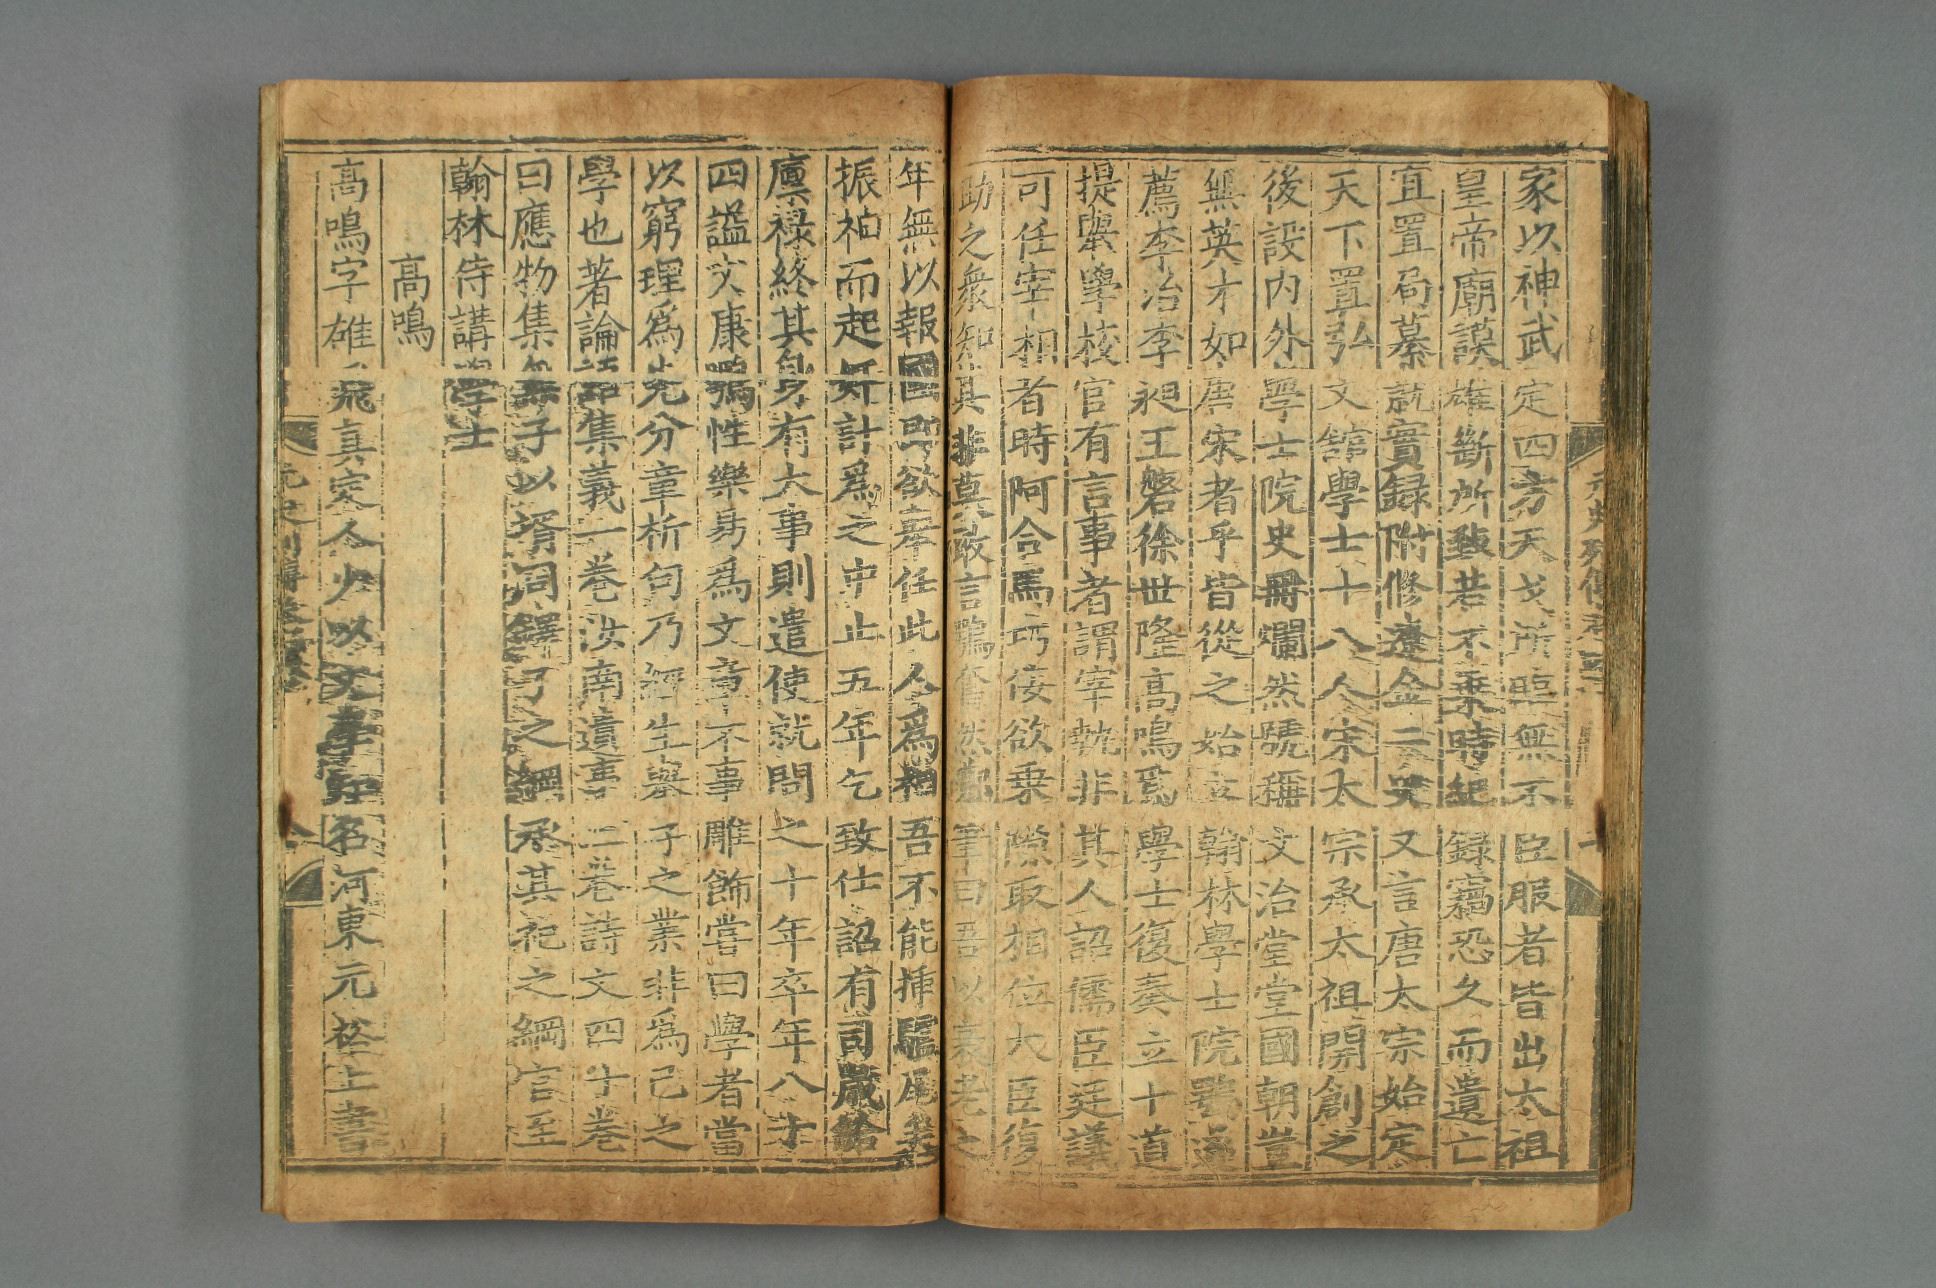 家以神武定四方天戈所臨無不臣服者皆出太祖
皇帝廟謨雄斷所致若不乗時紀録竊恐久而遺亡
宜置局纂就實録附修遼金二史又言唐太宗始定
天下置弘文舘學士十八人宋太宗承太祖開創之
後設内外學士院史冊爛然號稱文治堂堂國朝豈
無英才如唐宋者乎皆從之始立翰林學士院鶚遂
薦李冶李昶王磐徐世隆高鳴爲學士復奏立十道
提舉學校官有言事者謂宰執非其人詔儒臣廷議
可任宰相者時阿合馬巧佞欲乗隙取相位大臣復
助之衆知其非莫敢言鶚奮然擲筆曰吾以衰老之
年無以報國即欲舉任此人爲相吾不能揷驢尾矣
振袖而起奸計爲之中止五年乞致仕詔有司歳給
廪禄終其身有大事則遣使就問之十年卒年八十
四謚文康鶚性樂易爲文章不事雕飾嘗曰學者當
以窮理爲先分章析句乃經生舉子之業非爲己之
學也著論語集義一巻汝南遺事二巻詩文四十巻
曰應物集無子以壻周鐸子之綱承其祀之綱官至
翰林侍講學士
高鳴
高鳴字雄飛真定人少以文學知名河東元裕上書
元史列傳巻